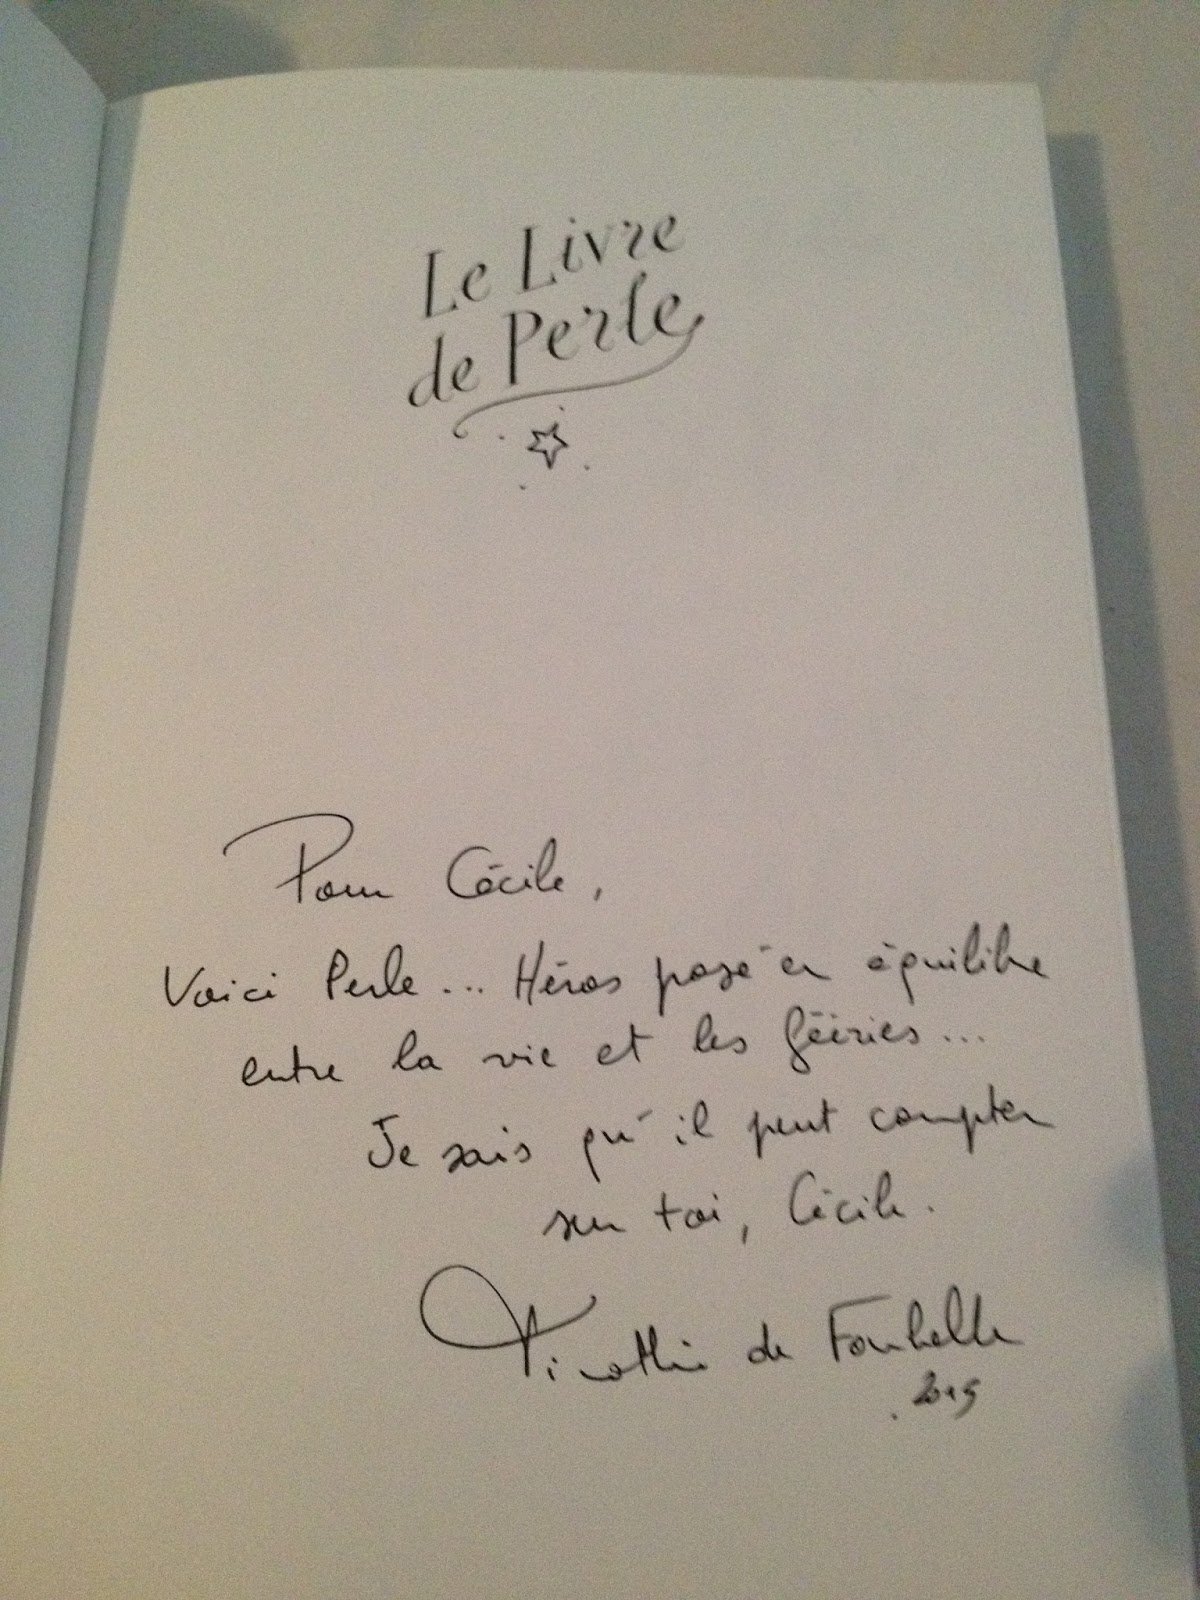 Le Livre
de Perle
Pour Cécile,
Voici Perle... Héros posé en équilibre
entre la vie et les féeries...
Je sais qu'il peut compter
sur toi, Cécile.
Timothée de Fombelle
2015